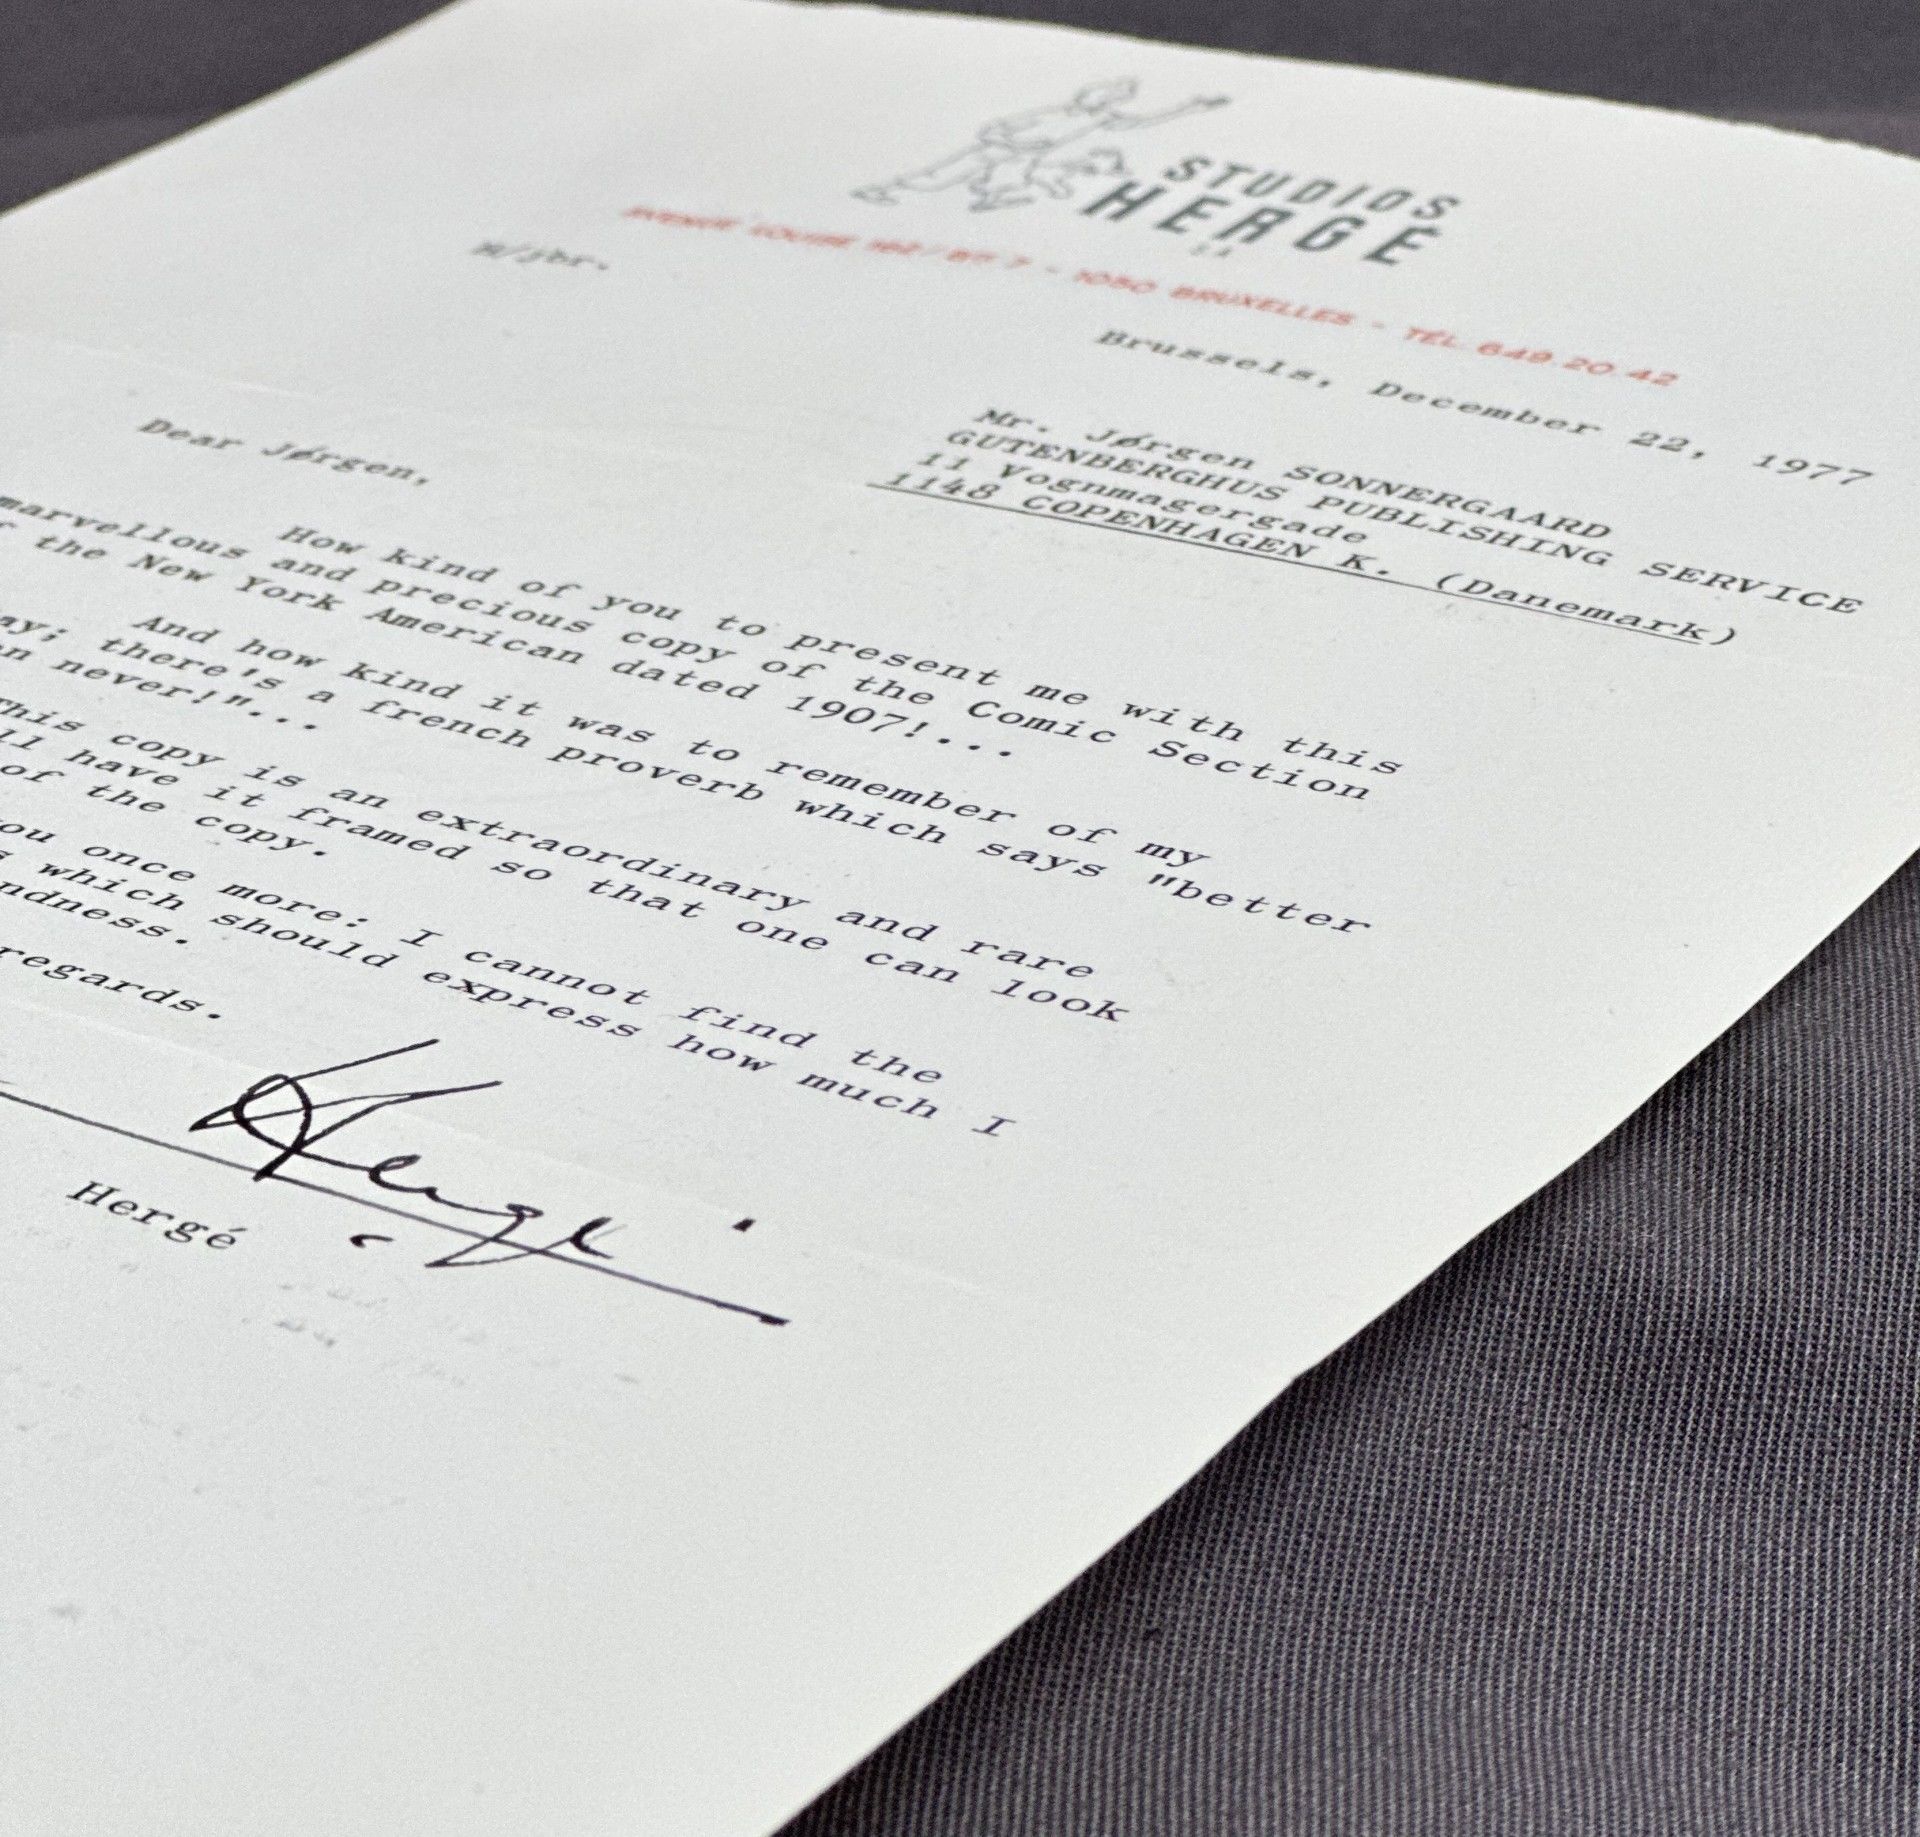 STUDIOS
HERGÉ
S.A.
AVENUE LOUISE 162/BTE 7 - 1050 BRUXELLES - TÉL. 649.20.42
H/jbr.
Brussels, December 22, 1977
Mr. Jørgen SONNERGAARD
GUTENBERGHUS PUBLISHING SERVICE
11 Vognmagergade
1148 COPENHAGEN K. (Danemark)
Dear Jørgen,
How kind of you to present me with this
marvellous and precious copy of the Comic Section
the New York American dated 1907!...
And how kind it was to remember of my
there's a french proverb which says "better
never!"...
This copy is an extraordinary and rare
have it framed so that one can look
of the copy.
once more: I cannot find the
which should express how much I
regards.
Hergé
Hergé